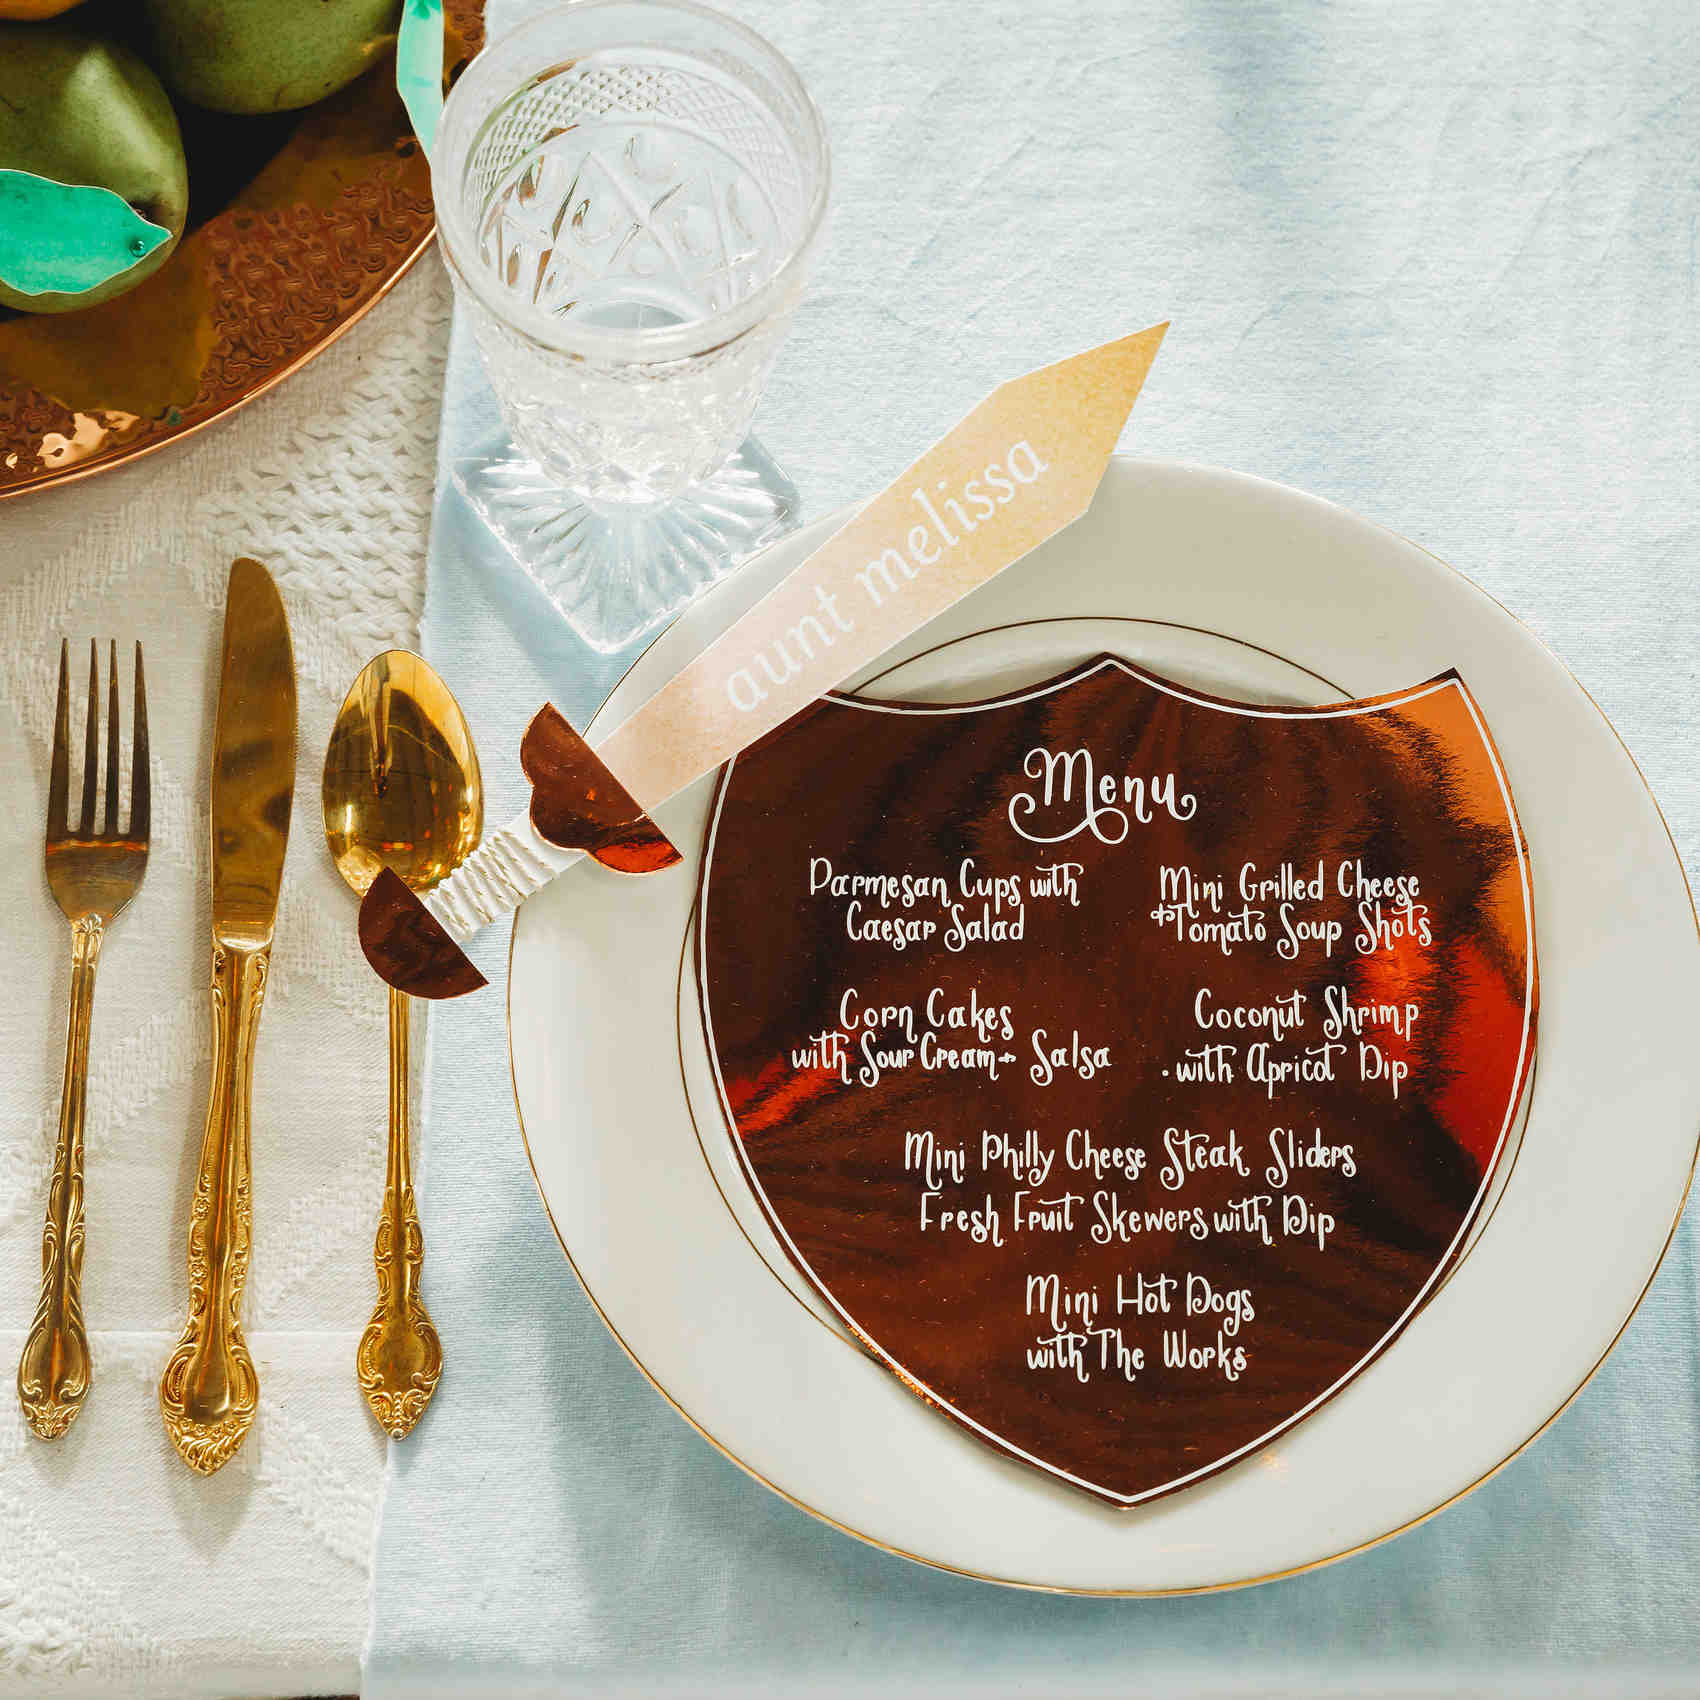 aunt melissa
Menu
Parmesan Cups with
Caesar Salad
Mini Grilled Cheese
+Tomato Soup Shots
Corn Cakes
with Sour Cream + Salsa
Coconut Shrimp
with Apricot Dip
Mini Philly Cheese Steak Sliders
Fresh Fruit Skewers with Dip
Mini Hot Dogs
with The Works